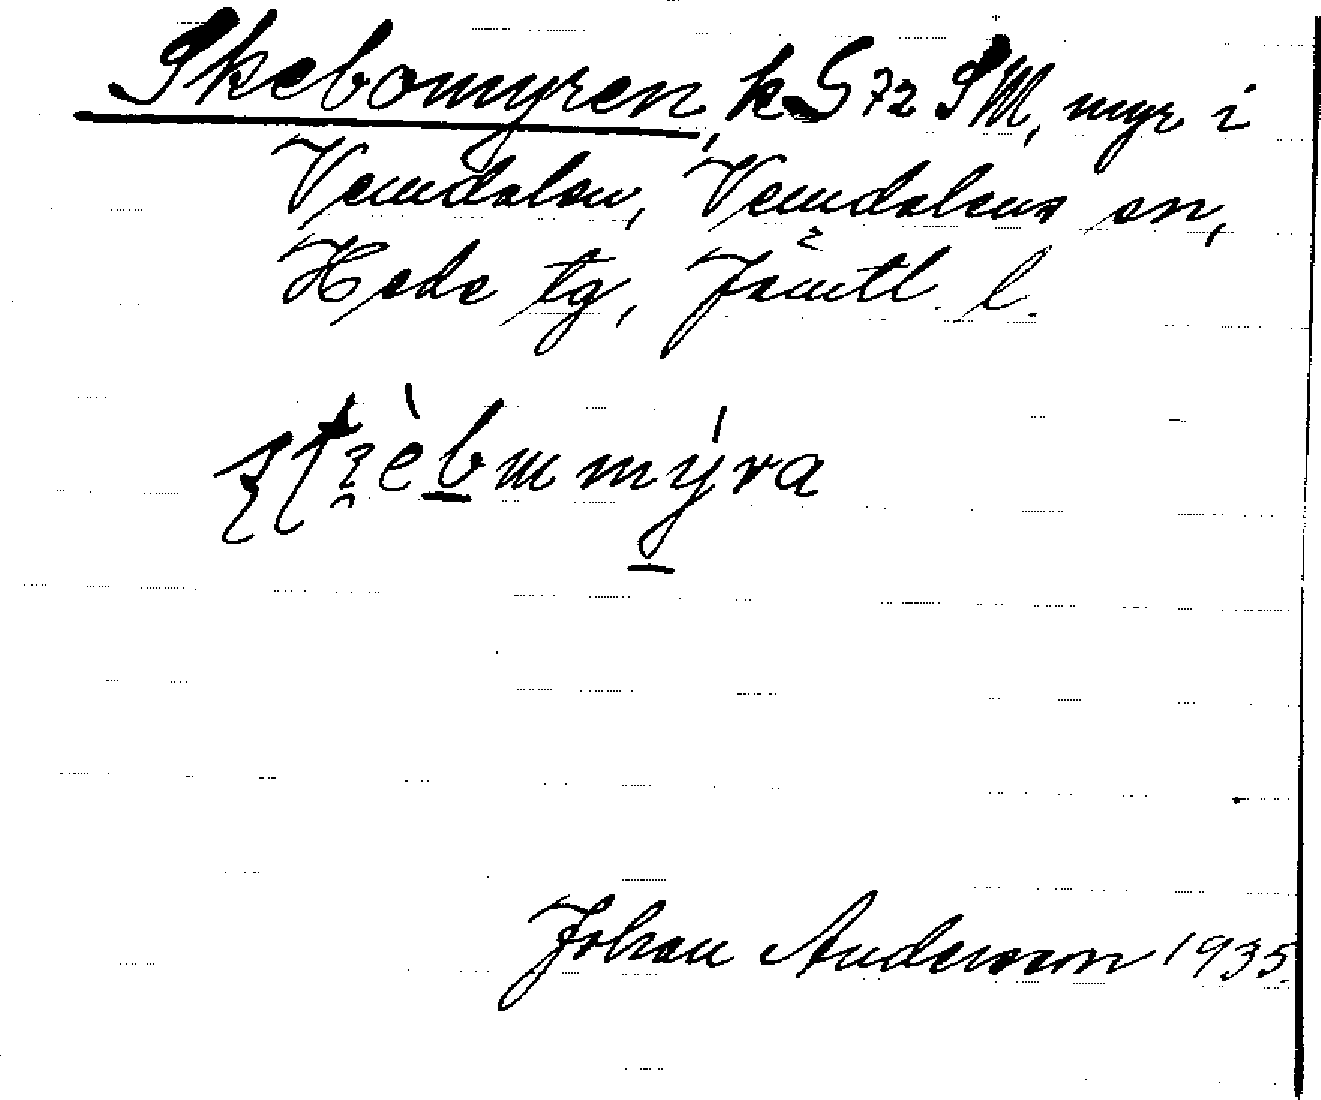 Skebomyren, k S 72 SM, myr i
Vemdalen, Vemdalens sn,
Hede tg, Jämtl. l.
Johan Andersson 1935